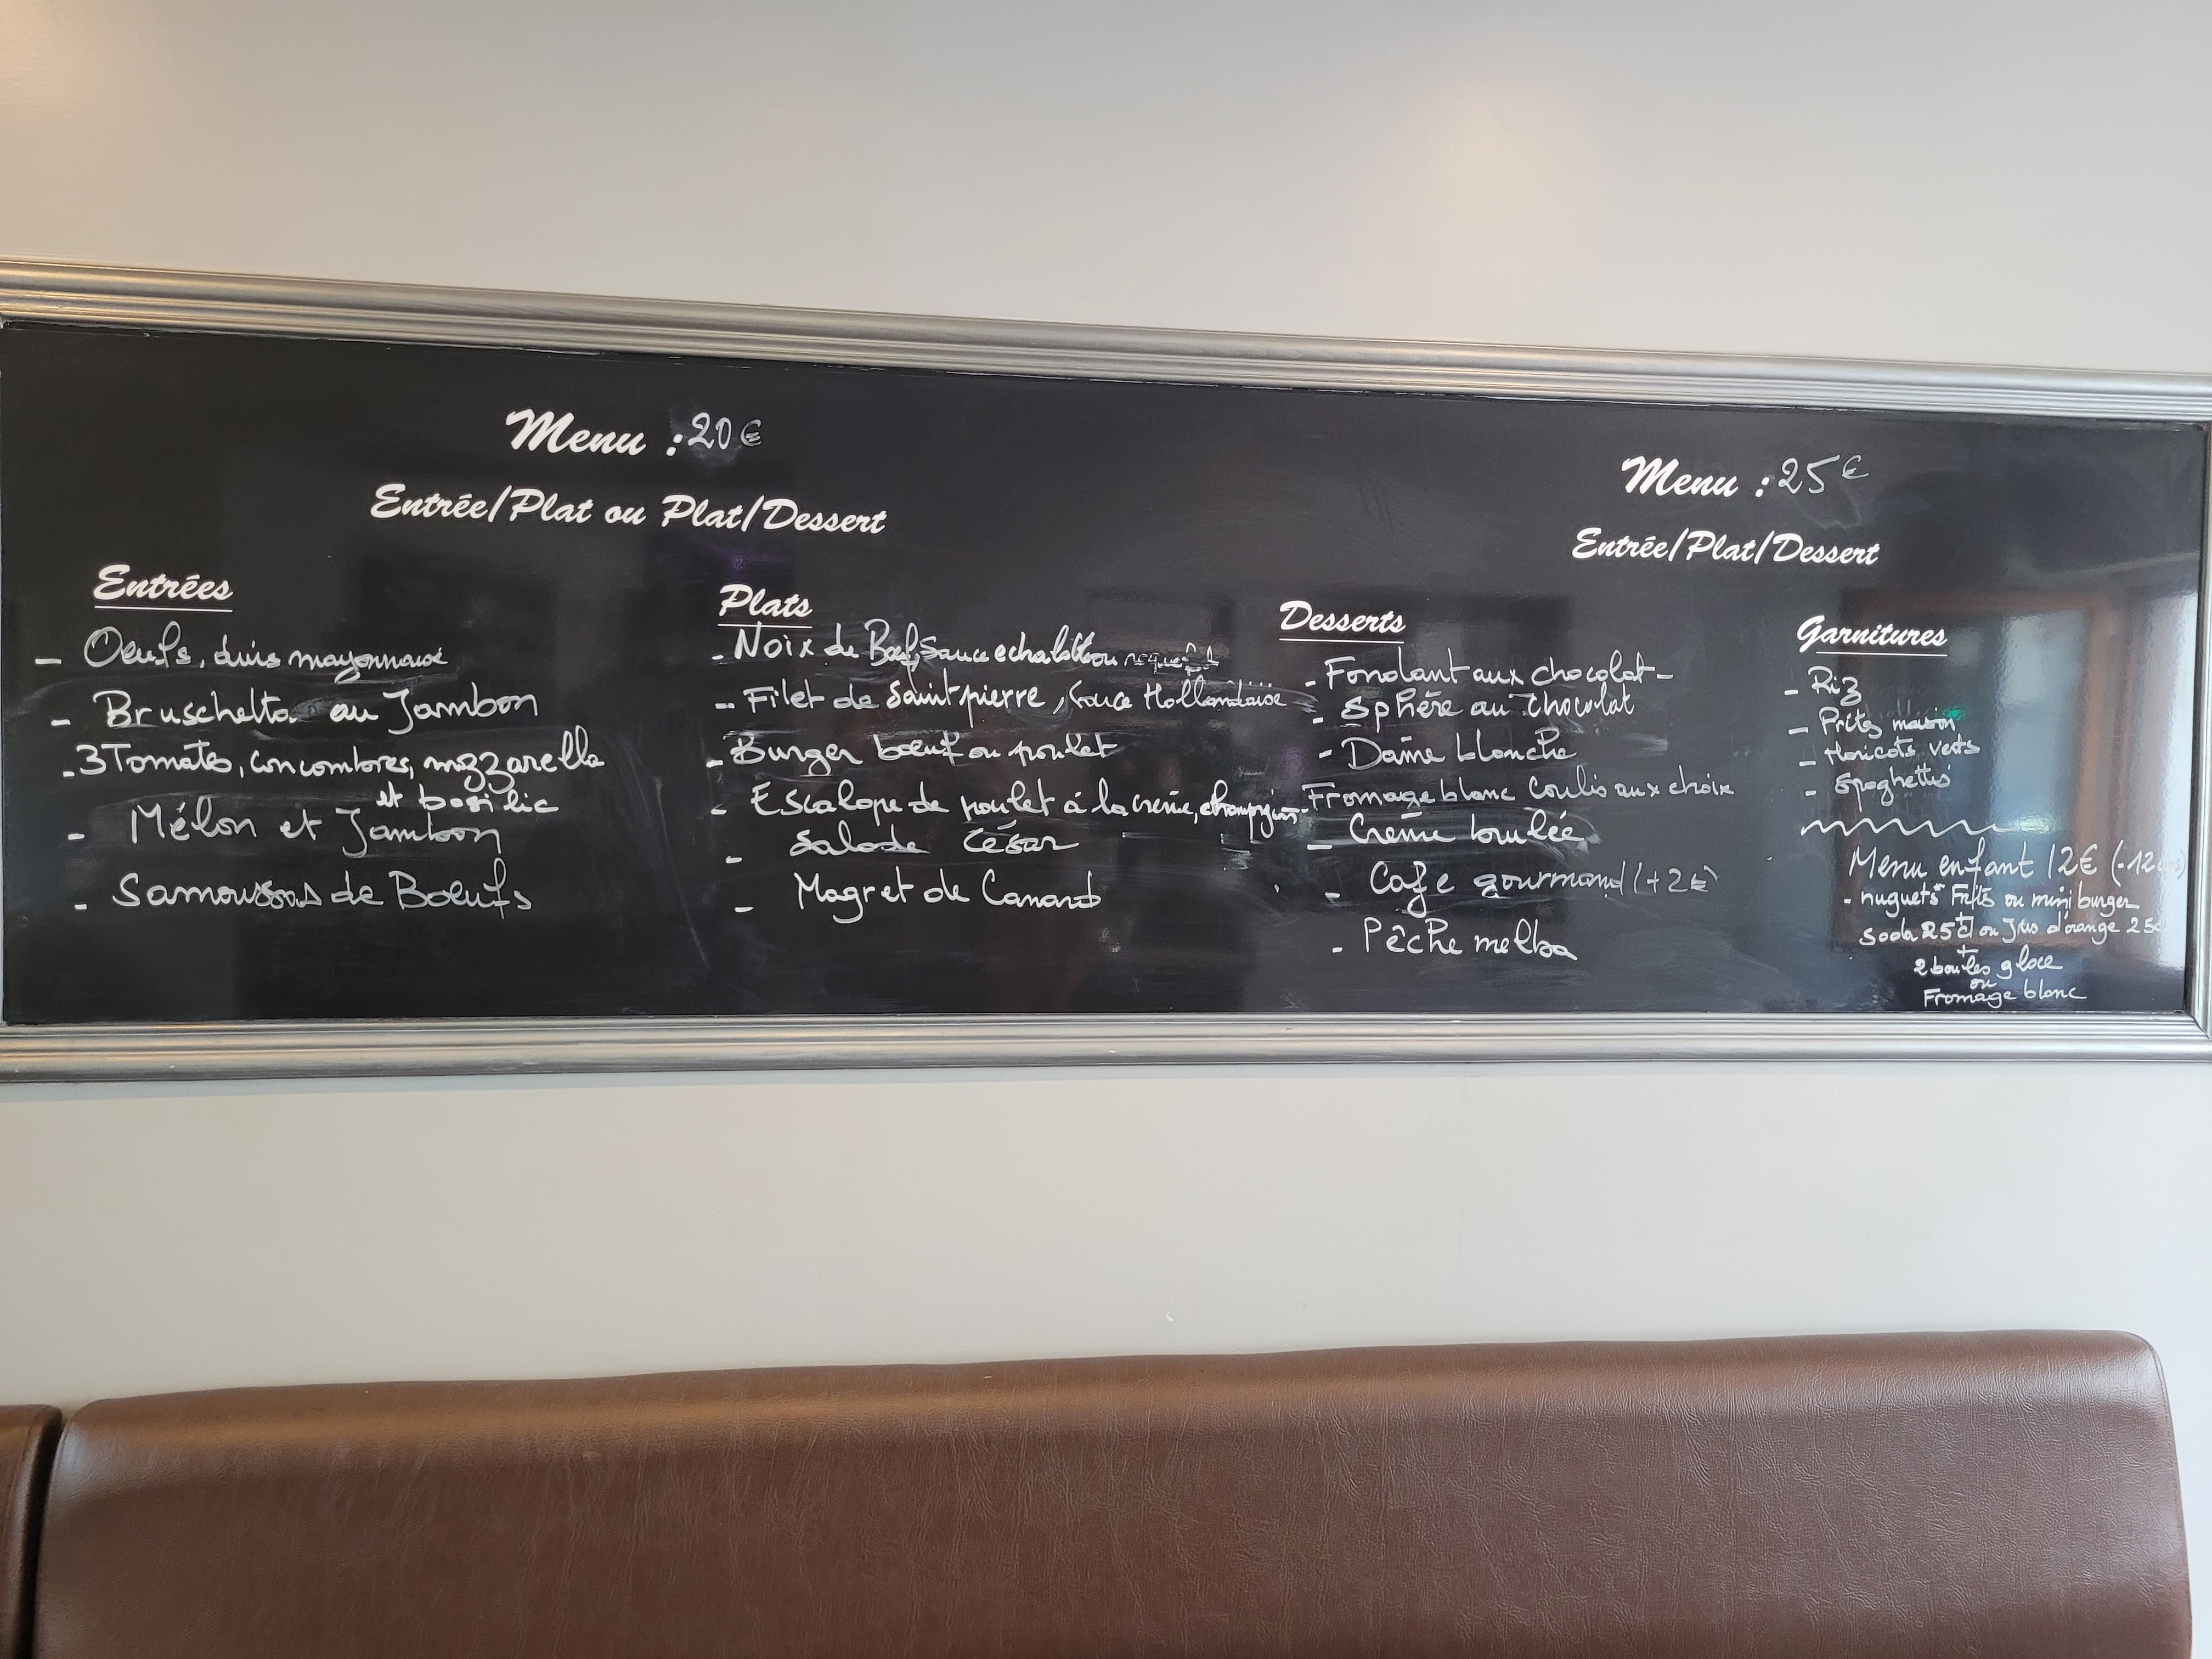 Menu : 20€
Entrée/Plat ou Plat/Dessert
Menu : 25€
Entrée/Plat/Dessert
Entrées
- Oeufs, durs mayonnaise
- Bruschetta au Jambon
- 3 Tomates, concombres, mozzarella
et basilic
- Mélon et Jambon
- Samoussas de Boeufs
Plats
- Noix de Boeuf, Sauce echalotte ou roquefort
- Filet de Saint-pierre, sauce Hollandaise
- Burger boeuf ou poulet
- Escalope de poulet á la crème, champignons
- Salade César
- Magret de Canard
Desserts
- Fondant aux chocolat
- Sphère au chocolat
- Dame blanche
- Fromage blanc Coulis aux choix
- Crème brulée
- Café gourmand (+2€)
- Pêche melba
Garnitures
- Riz
- Frites maison
- Haricots verts
- Spaghettis
Menu enfant 12€ (-12
- nuguets Frites ou mini burger
+
Soda 25cl ou Jus d'orange 25c
+
2 boules glace
ou
Fromage blanc